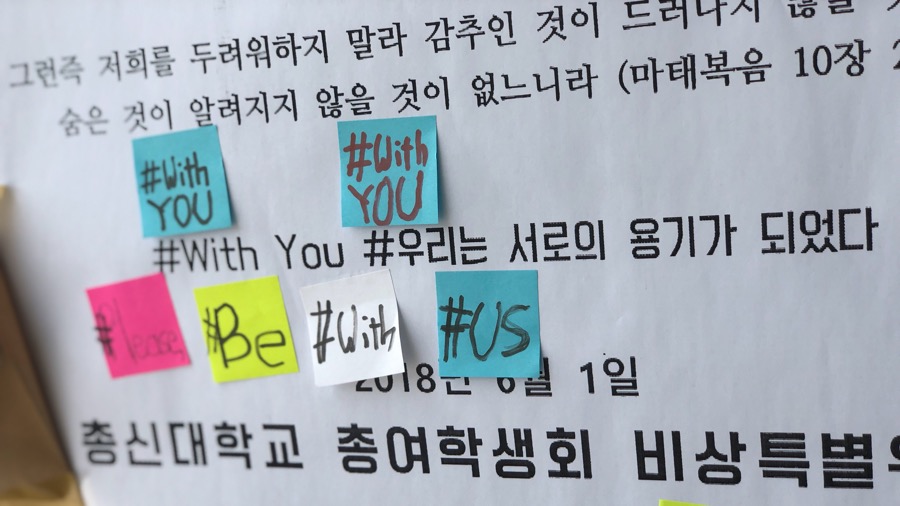 그런즉 저희를 두려워하지 말라 감추인 것이 드러나지 않을
숨은 것이 알려지지 않을 것이 없느니라 (마태복음 10장
#With
YOU
#With
YOU
#With You #우리는 서로의 용기가 되었다
#Please,
#Be
#With
#US
2018년 6월 1일
총신대학교 총여학생회 비상특별